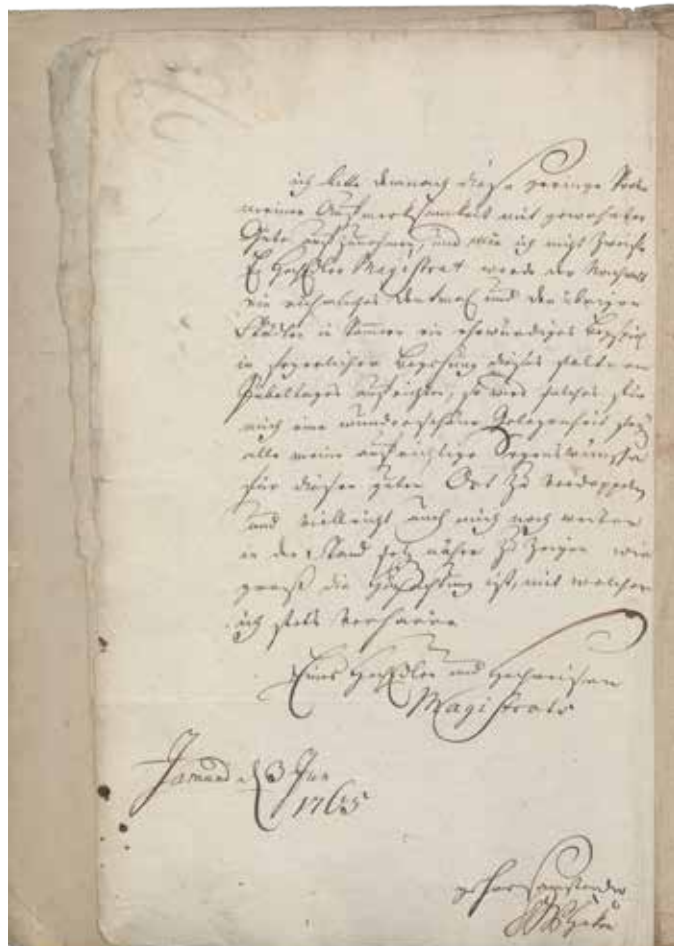 ich bitte demnach diese geringe Probe
meiner Aufmerksamkeit mit gewohnter
Güte aufzunehmen, und wie ich nicht zweifle
E HochEdler Magistrat werde der Nachwelt
ein rühmliches Denkmal und den übrigen
Städten in ein ehrwürdiges Beyspiel
in feyerlicher Begehung dieses seltenen
Jubeltages aufrichten, so wird solches für
mich eine wunderschöne Gelegenheit seyn
alle meine aufrichtige Segenswünsche
für diesen guten Ort zu verdoppeln
und vielleicht auch mich noch weiter
in den Stand setzen näher zu zeigen wie
groß die Hochachtung ist, mit welcher
ich stets verharre
Eines HochEdlen und Hochweisen
Magistrats
Jamund d 3 Jun
1765
gehorsamster